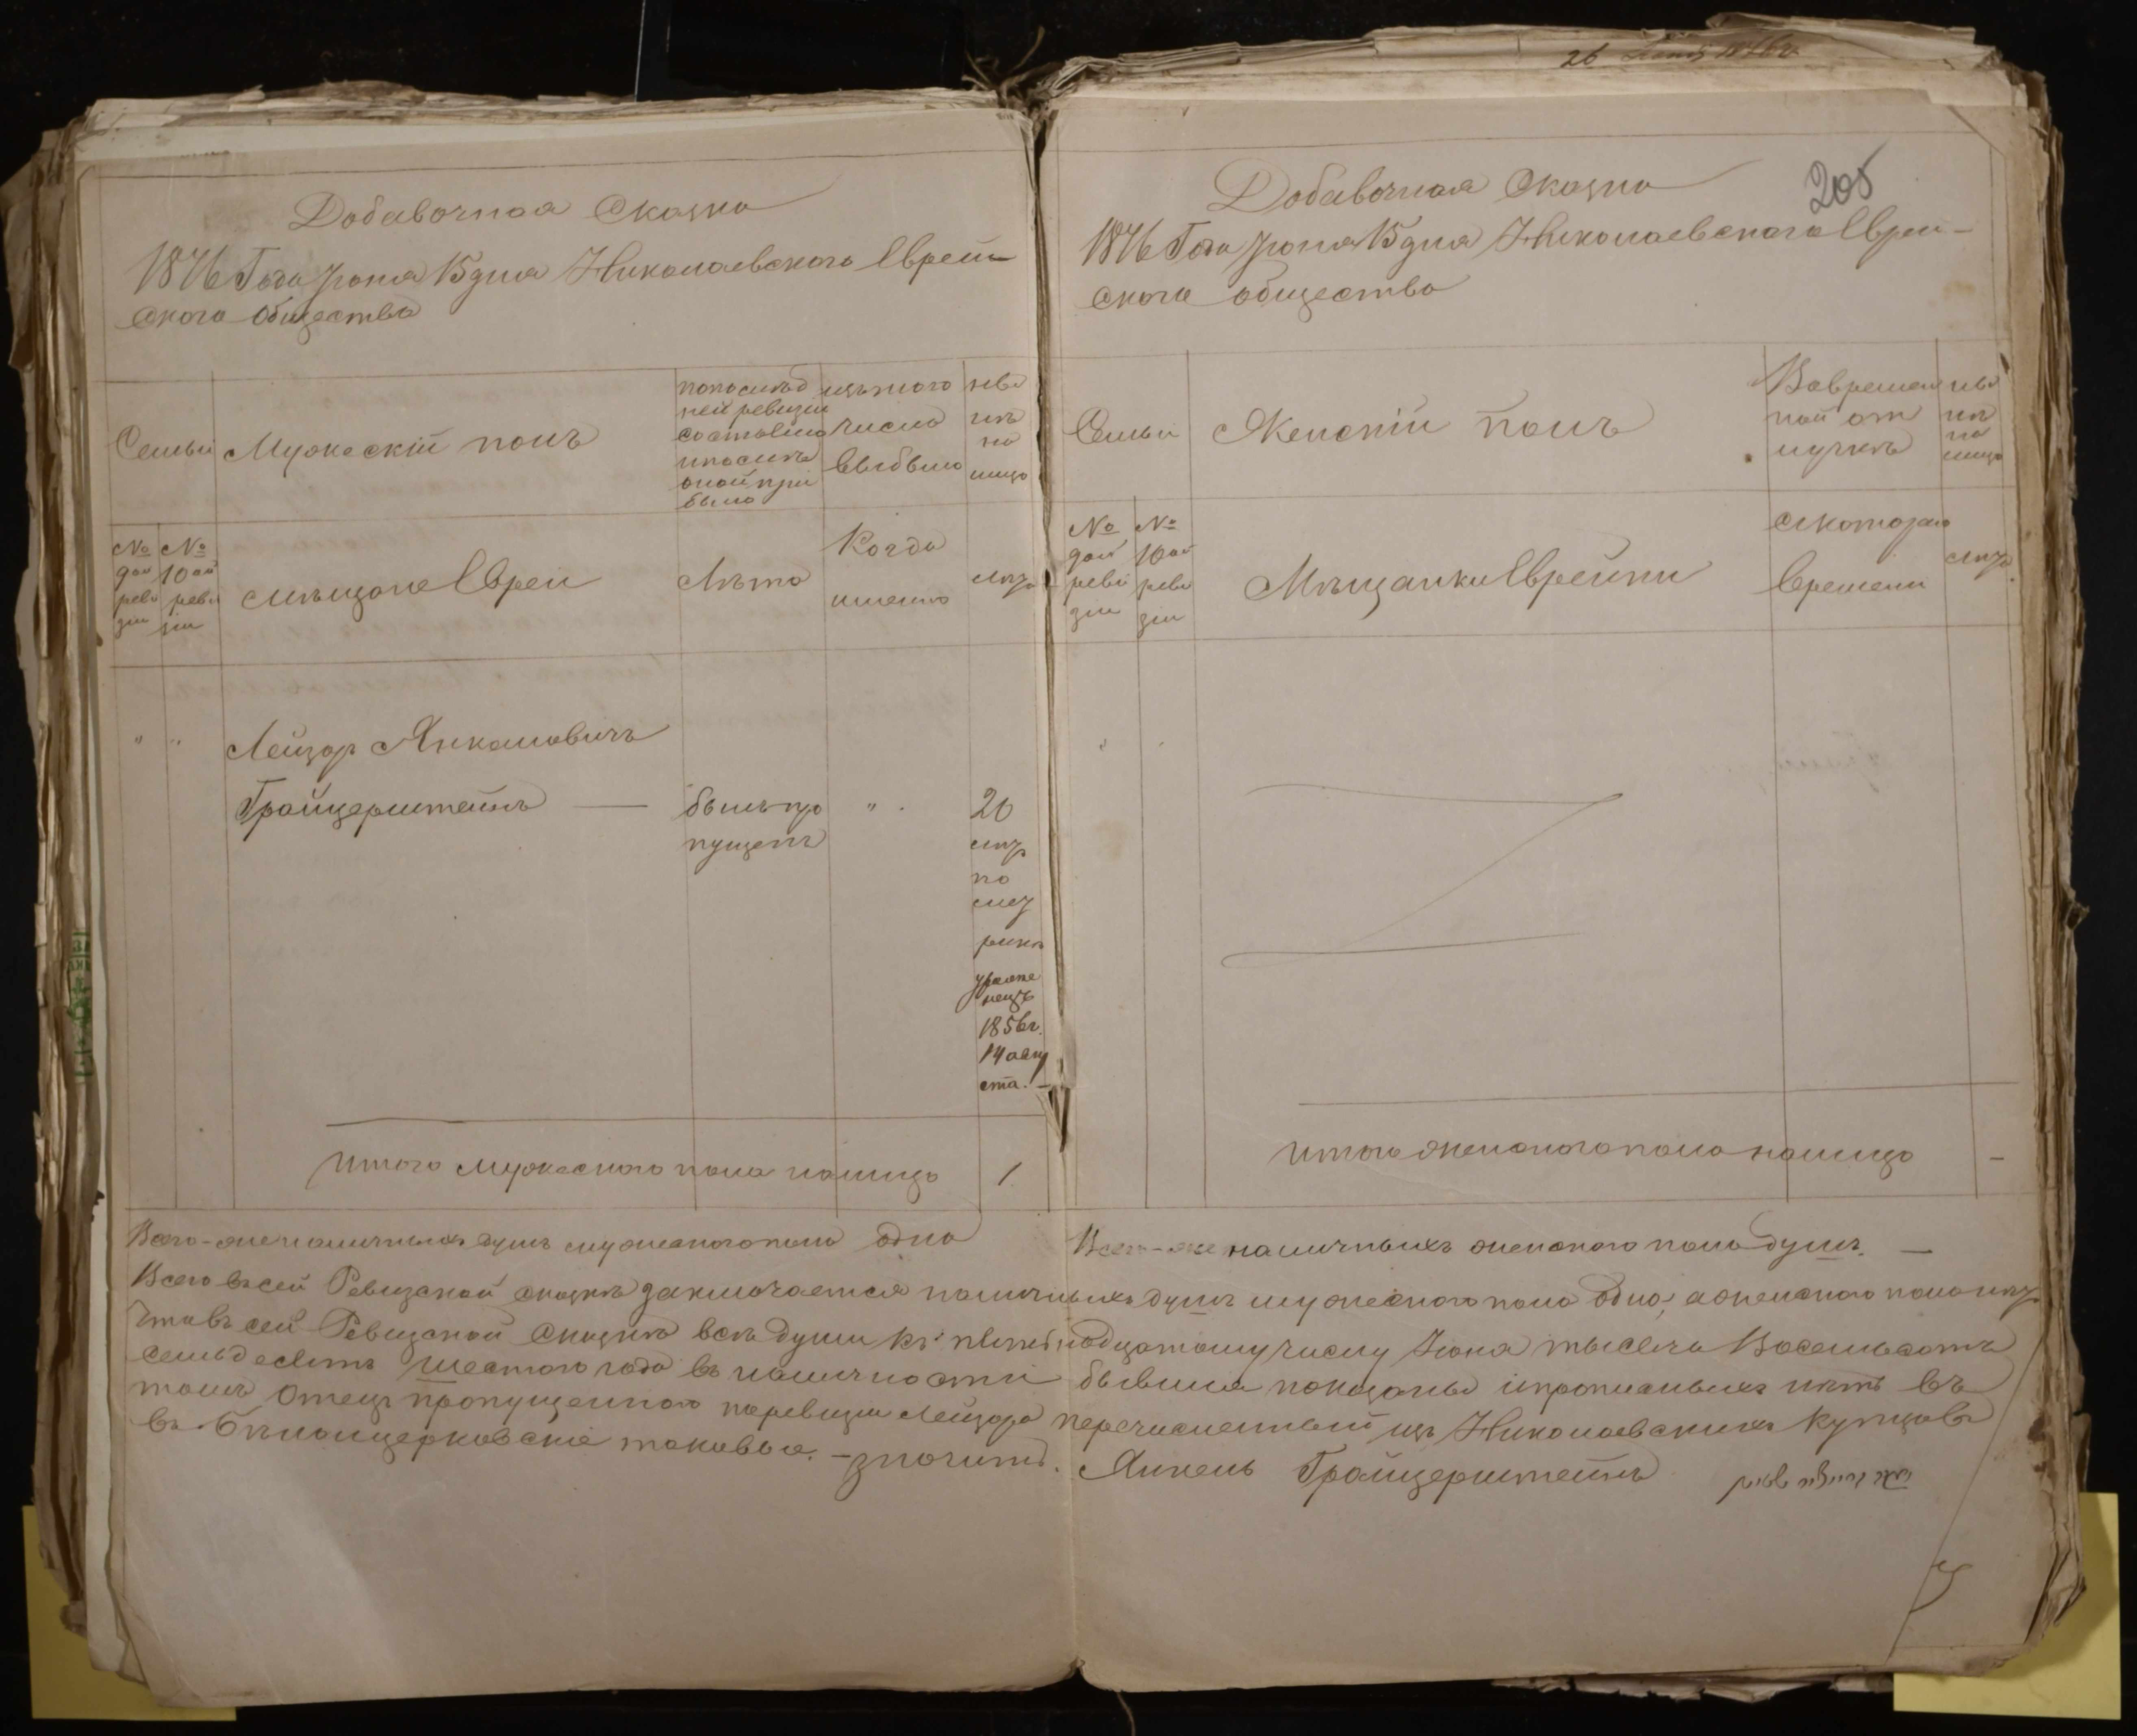 26 1876 г.
Добавочная Сказка
1876 Года Іюня 15 дня Николаевского Еврей-
ского Общества
Семьи
Мужескій полъ
по послѣд
ней ревизіи
состояло
и послѣ
оной при
было
изъ того
числа
выбыло
ны
нѣ
на
лицо
№
9 ой
реви
зіи
№
10 ой
реви
зіи
мѣщане Евреи
Лѣта
Когда
именно
лѣта
" "
Лейзор Янкелевичъ
Грайцерштейнъ —
былъ про
пущенъ
" .
20
лѣт
по
мет
рикѣ
уроже
нецъ
1856 г.
14 авгу
ста. —
Итого мужеского пола на лицо 1
Всего-же наличныхъ душъ мужеского пола одна
205
Добавочная Сказка
1876 Года Іюня 15 дня Николаевского Еврей-
ского общества
Семьи
Женскій полъ
Во времен
ной от
лучкѣ
ны
нѣ
на
лицо
№
9 ой
реви
зіи
№
10 ой
реви
зіи
Мѣщанки Еврейки
Съ котораго
времени
лѣта
"
Итого женского пола на лицо —
Всего-же наличныхъ женского пола душъ. —
Всего въ сей Ревизской сказкѣ заключается наличныхъ душъ мужеского пола одна, а женского пола нѣт
Что въ сей Ревизской Сказкѣ всѣ души къ пятнадцатому числу Іюня тысяча Восемьсотъ
семьдесятъ шестого года въ наличности бывшіе показаны и прописныхъ нѣтъ въ
томъ Отецъ пропущенного по ревизіи Лейзора перечисленный изъ Николаевскихъ Купцовъ
въ Бѣлоцерковскіе таковые. — Янкель Грайцерштейнъ